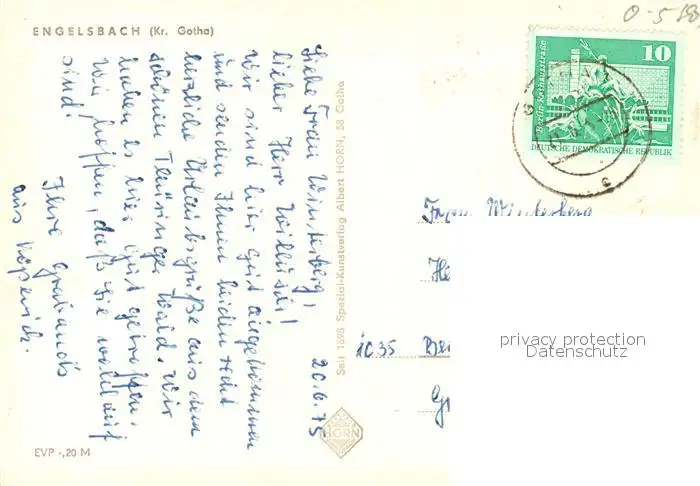 ENGELSBACH (Kr. Gotha)
20.6.75
Liebe Frau Winterberg,
lieber Herr
Wir sind hier gut angekommen
und senden Ihnen beiden recht
herzliche Urlaubsgrüße aus dem
schönen Thüringer Wald. Wir
haben es hier gut getroffen.
Wir hoffen, daß Sie wohlauf
sind!
Ihre Grabands
aus Köpenick.
EVP -,20 M
Seit 1898 Spezial-Kunstverlag Albert HORN, 58 Gotha
HORN
0-5
10
Berlin Rathausstraße
DEUTSCHE DEMOKRATISCHE REPUBLIK
c
Frau Winterberg
He
1035 Ber
G
privacy protection
Datenschutz